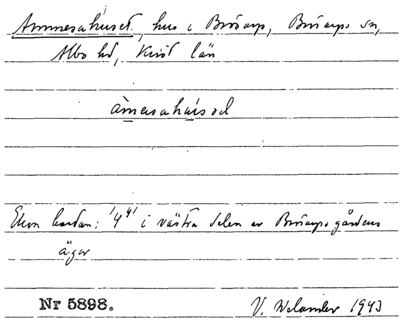 Ammesahuset, hus i Brösarp, Brösarps sn,
Albo hd, Krist län
Ekon kartan: '4⁴' i västra delen av Brösarps gårdens
ägor
Nr 5898. V. Welander 1943